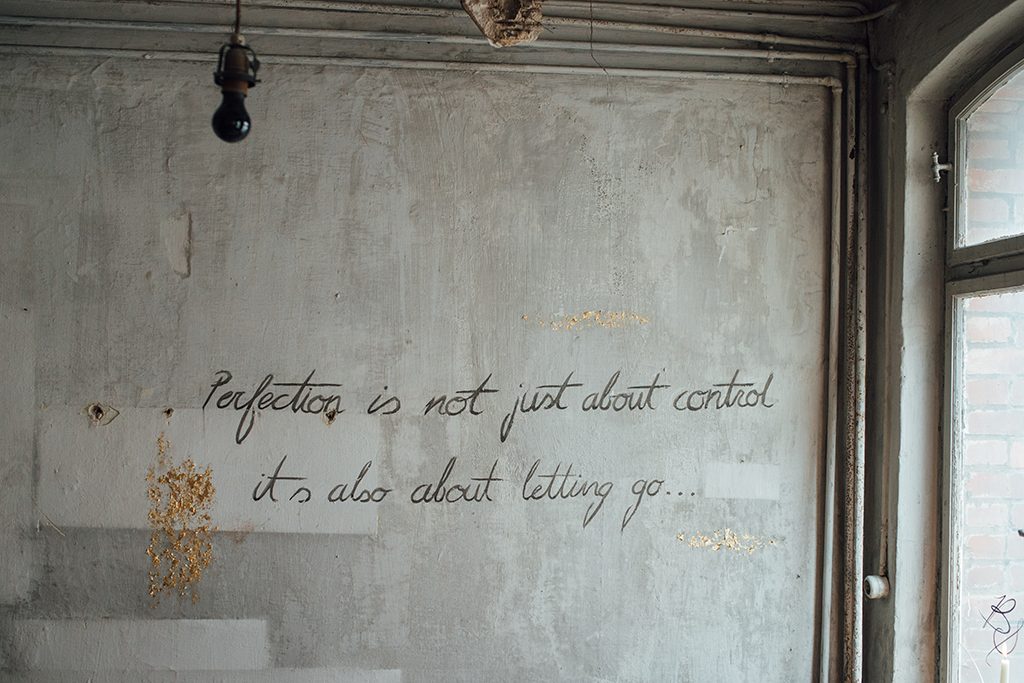 Perfection is not just about control
it's also about letting go...